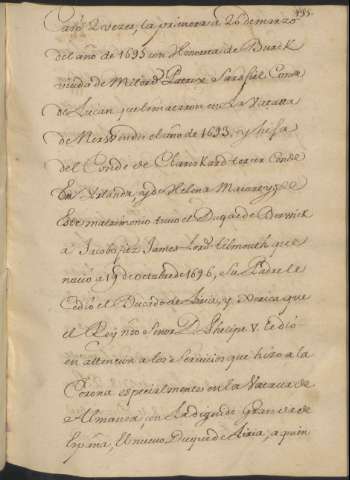 195.
Casó 2 vezes, la primera a 26 de marzo
del año de 1695 con Honorata de Burck
viuda de Milord Patricx Sarsfiel Conde
de Lucan, que le mataron en La Vatalla
de Nerwinden el año de 1693, y hija
del Conde de Clanrikard tercer Conde
En Irlanda, y de Helena Macarty; de
Este matrimonio tuvo el Duque de Berwick
a Jacobo fiz James Lord tilmouth que
nació a 19 de octubre de 1696, Su Padre le
Cedió el Ducado de Liria, y Xerica que
el Rey nro Señor D. Phelipe V. le dió
en attencion a los servicios que hizo a la
Corona especialmente en la Vatalla de
Almansa, con La dignd. de Grande de
España, El nuevo Duque de Liria, a quien